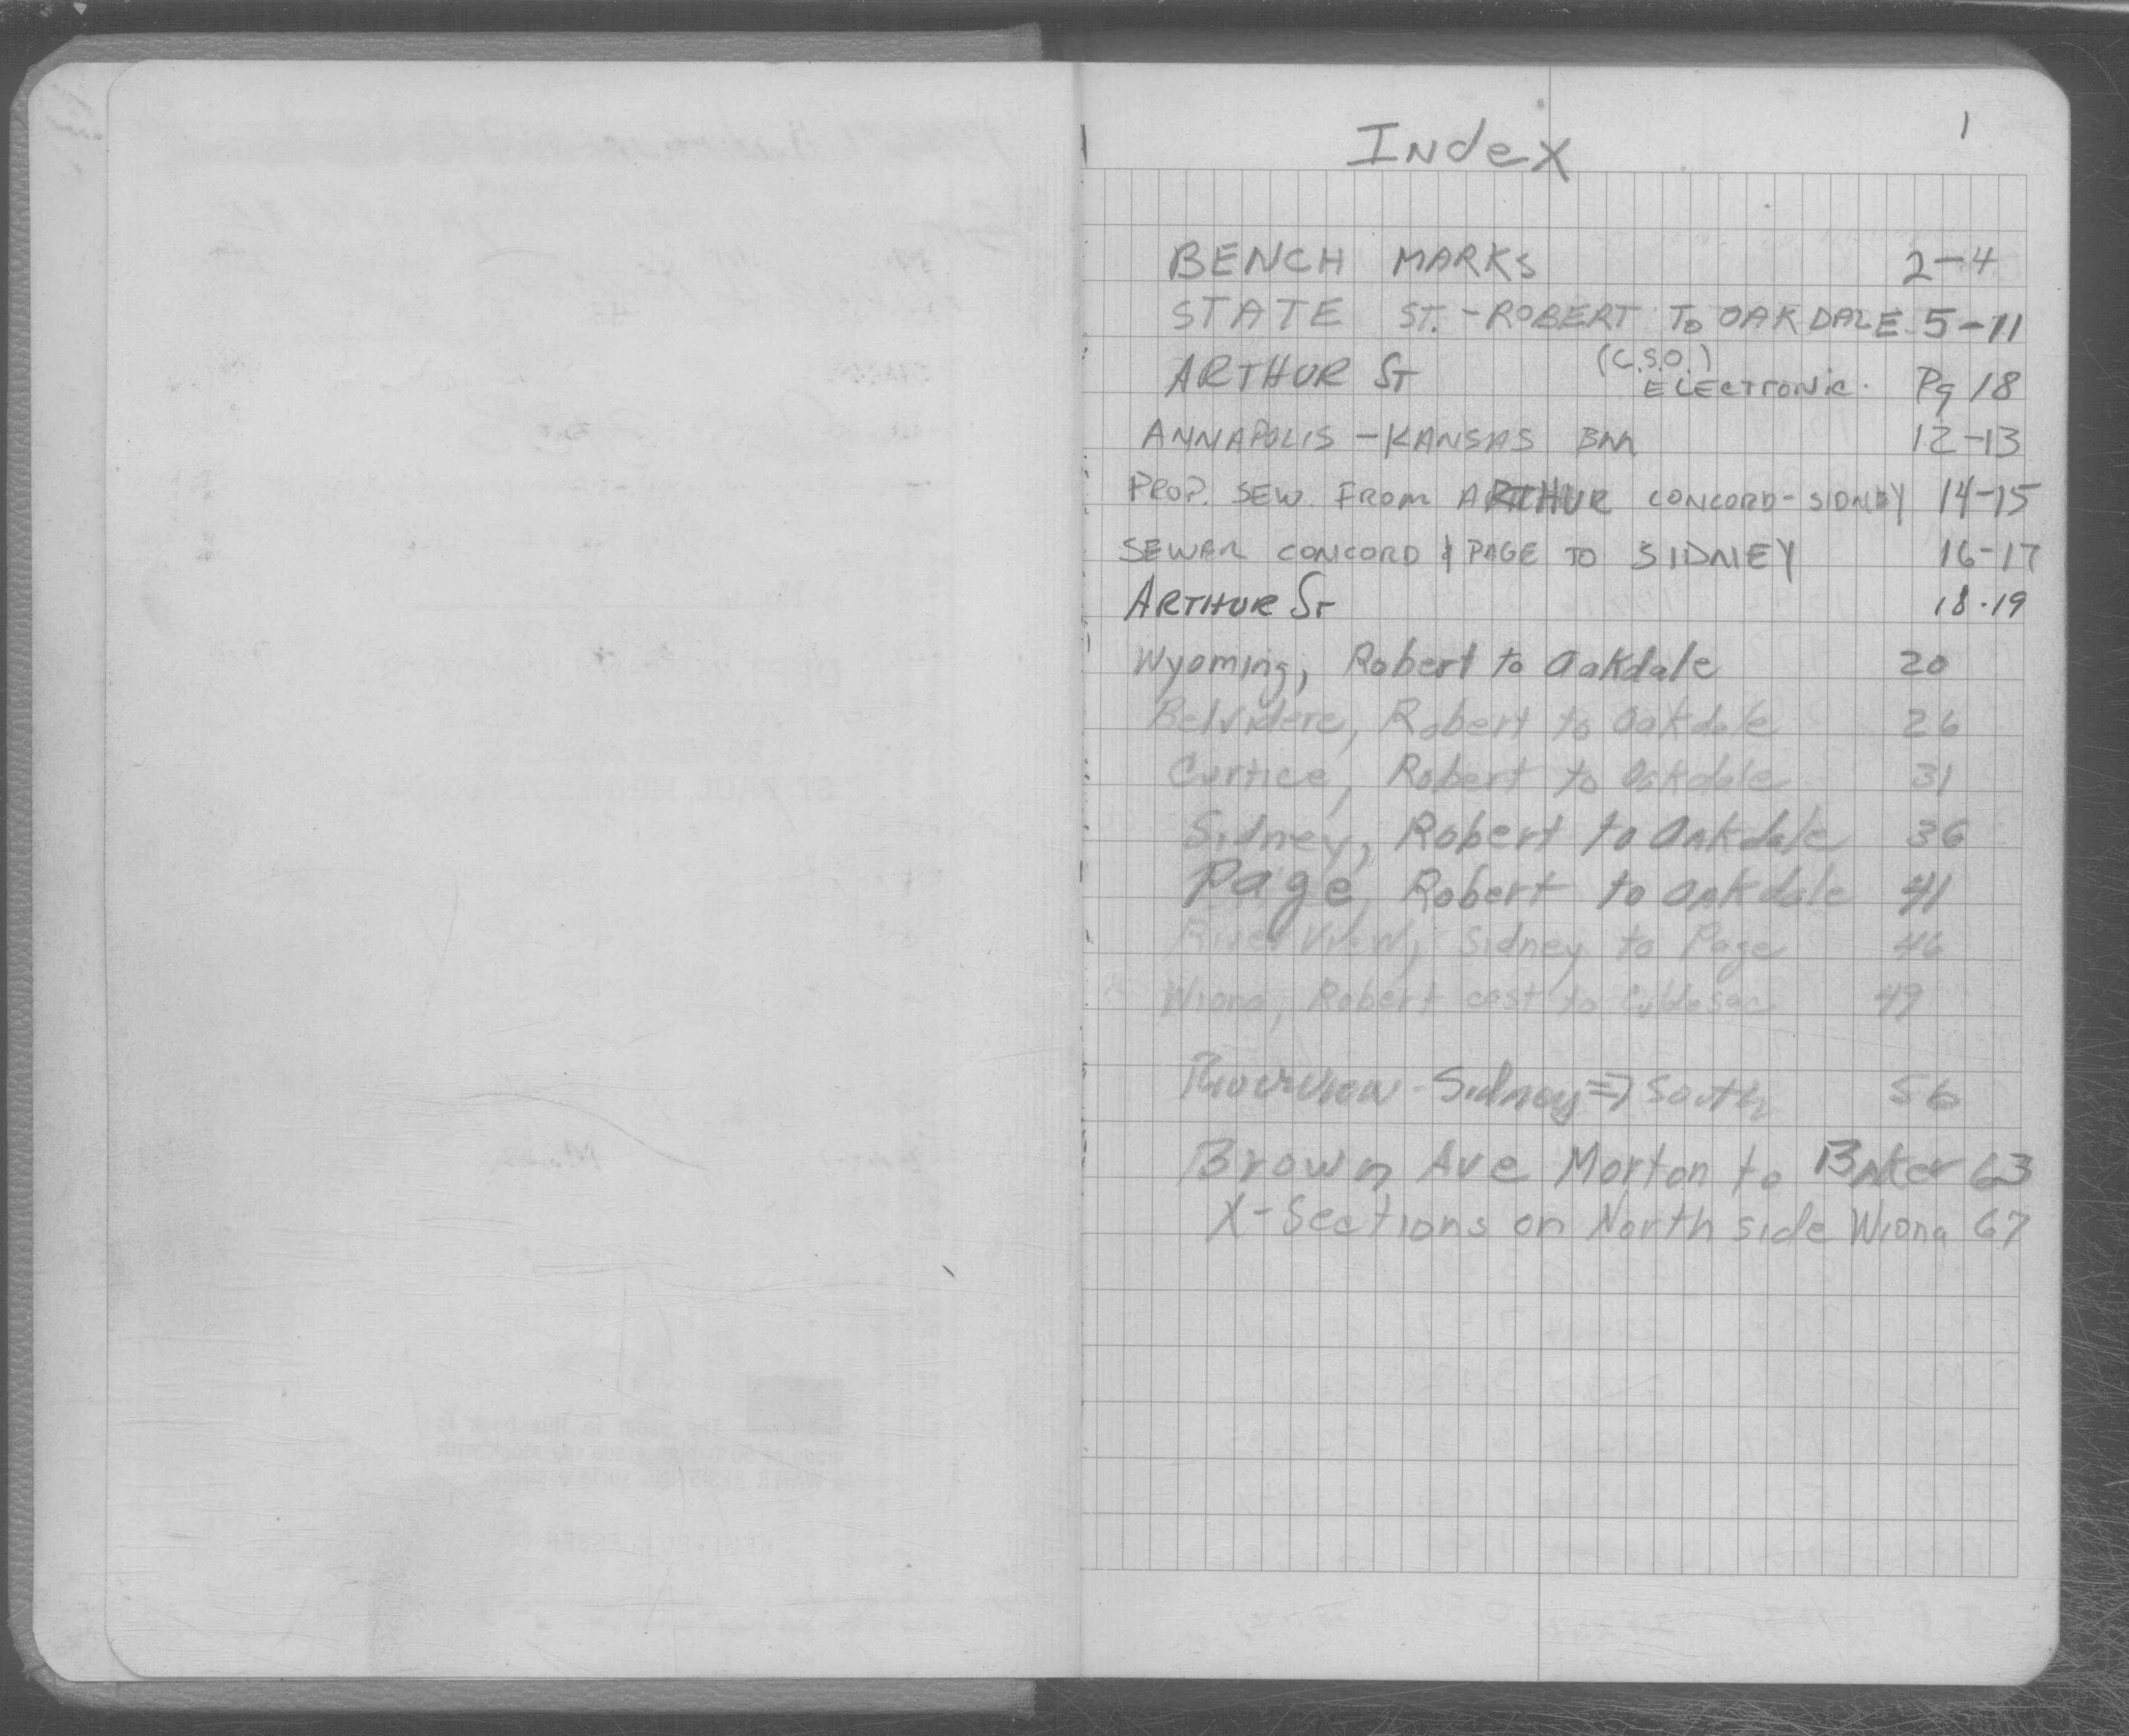 Index
1
BENCH MARKS 2-4
STATE ST. - ROBERT TO OAKDALE 5-11
ARTHUR ST (C.S.O.) ELECTRONIC. Pg 18
ANNAPOLIS - KANSAS BM 12-13
PROP. SEW. FROM ARTHUR CONCORD - SIDNEY 14-15
SEWER CONCORD & PAGE TO SIDNEY 16-17
ARTHUR ST 18-19
Wyoming, Robert to Oakdale 20
Belvidere, Robert to Oakdale 26
Curtice, Robert to Oakdale 31
Sidney, Robert to Oakdale 36
Page, Robert to Oakdale 41
Riverview, Sidney to Page 46
Wiona, Robert east to Culdesac 49
Riverview - Sidney => South 56
Brown Ave Morton to Baker 63
X-Sections on North side Wiona 67